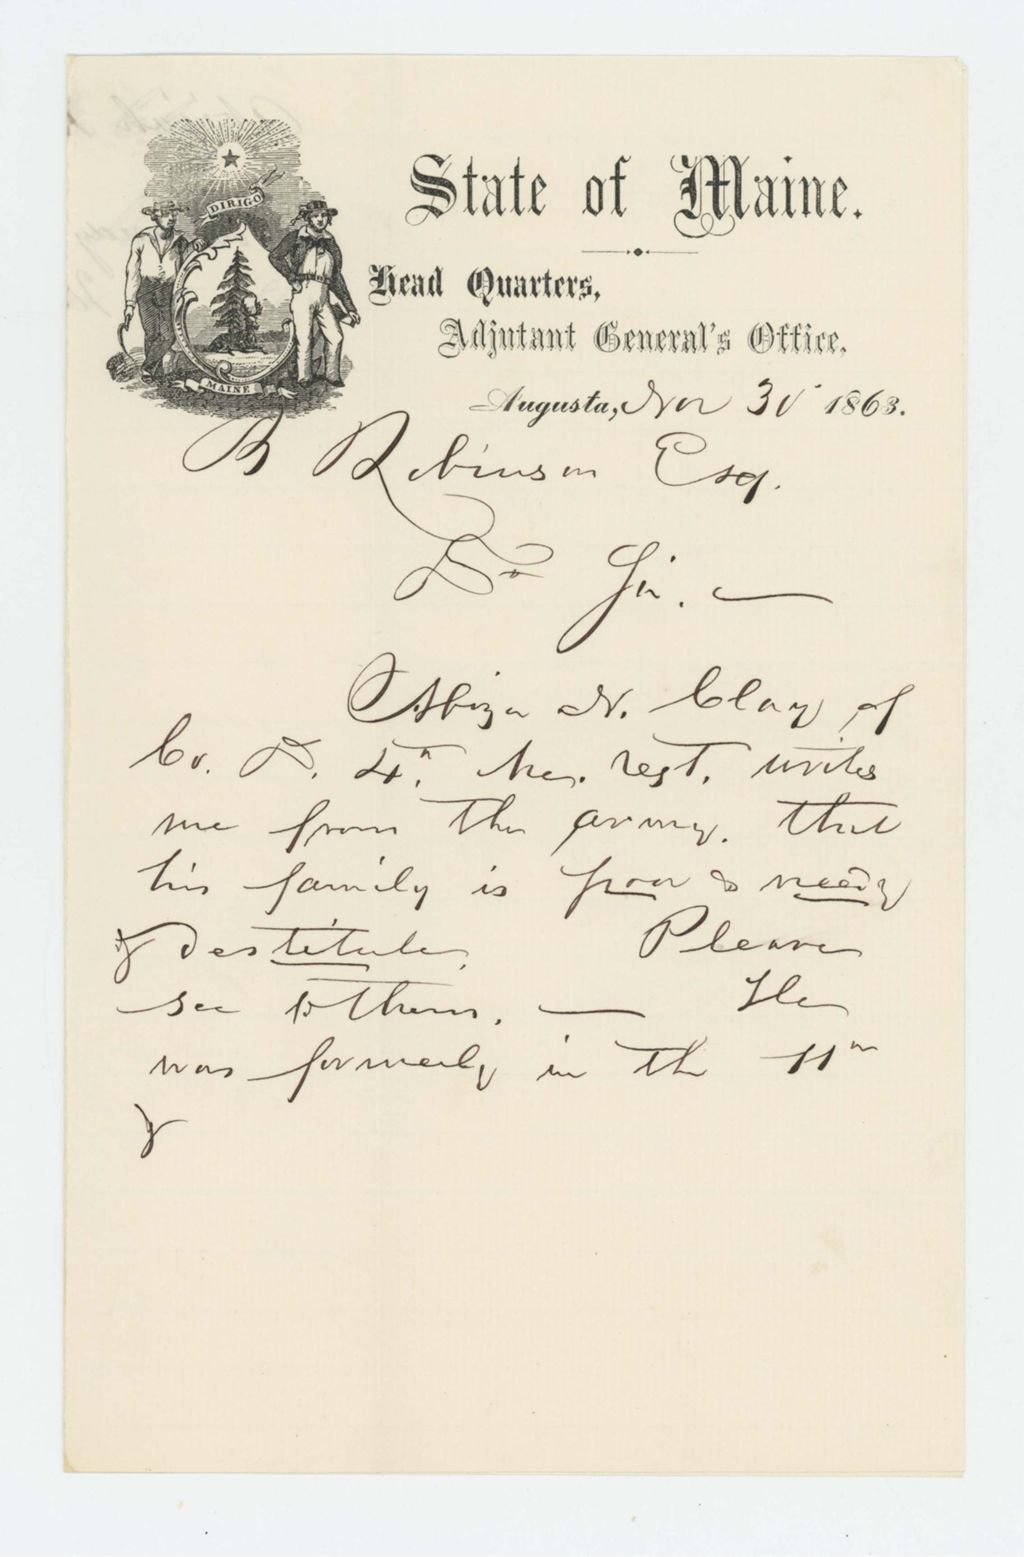 DIRIGO
MAINE
State of Maine.
Head Quarters,
Adjutant General's Office,
Augusta, Nov 30 1863.
B Robinson Esq.
Dr Sir. —
Abiza N. Clay of
Co. D. 4th Me. regt. writes
me from the army, that
his family is poor & needy
& destitute. Please
see to them. — He
was formerly in the 11th